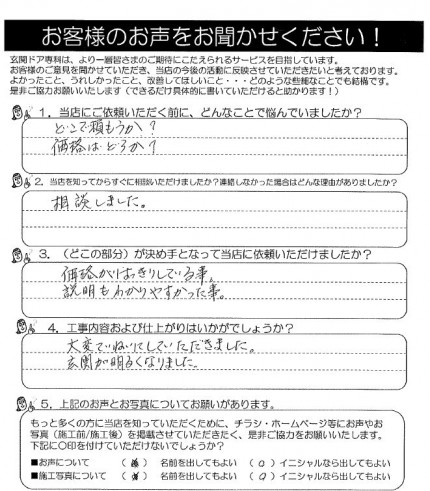 お客様のお声をお聞かせください！
玄関ドア専科は、より一層皆さまのご期待にこたえられるサービスを目指しています。
お客様のご意見を聞かせていただき、当店の今後の活動に反映させていただきたいと考えております。
よかったこと、うれしかったこと、改善してほしいこと・・・どのような些細なことでも結構です。
是非ご協力お願いいたします（できるだけ具体的に書いていただけると助かります！）
1．当店にご依頼いただく前に、どんなことで悩んでいましたか？
どこで頼もうか？
価格はどうか？
2．当店を知ってからすぐに相談いただけましたか？連絡しなかった場合はどんな理由がありましたか？
相談しました。
3．（どこの部分）が決め手となって当店に依頼いただけましたか？
価格がはっきりしている事。
説明もわかりやすかった事。
4．工事内容および仕上がりはいかがでしょうか？
大変ていねいにしていただきました。
玄関が明るくなりました。
5．上記のお声とお写真についてお願いがあります。
もっと多くの方に当店を知っていただくために、チラシ・ホームページ等にお声やお
写真（施工前/施工後）を掲載させていただきたく、是非ご協力をお願いいたします。
下記に〇印を付けていただけないでしょうか？
■お声について （ ） 名前を出してもよい （○）イニシャルなら出してもよい
■施工写真について （ ） 名前を出してもよい （○）イニシャルなら出してもよい